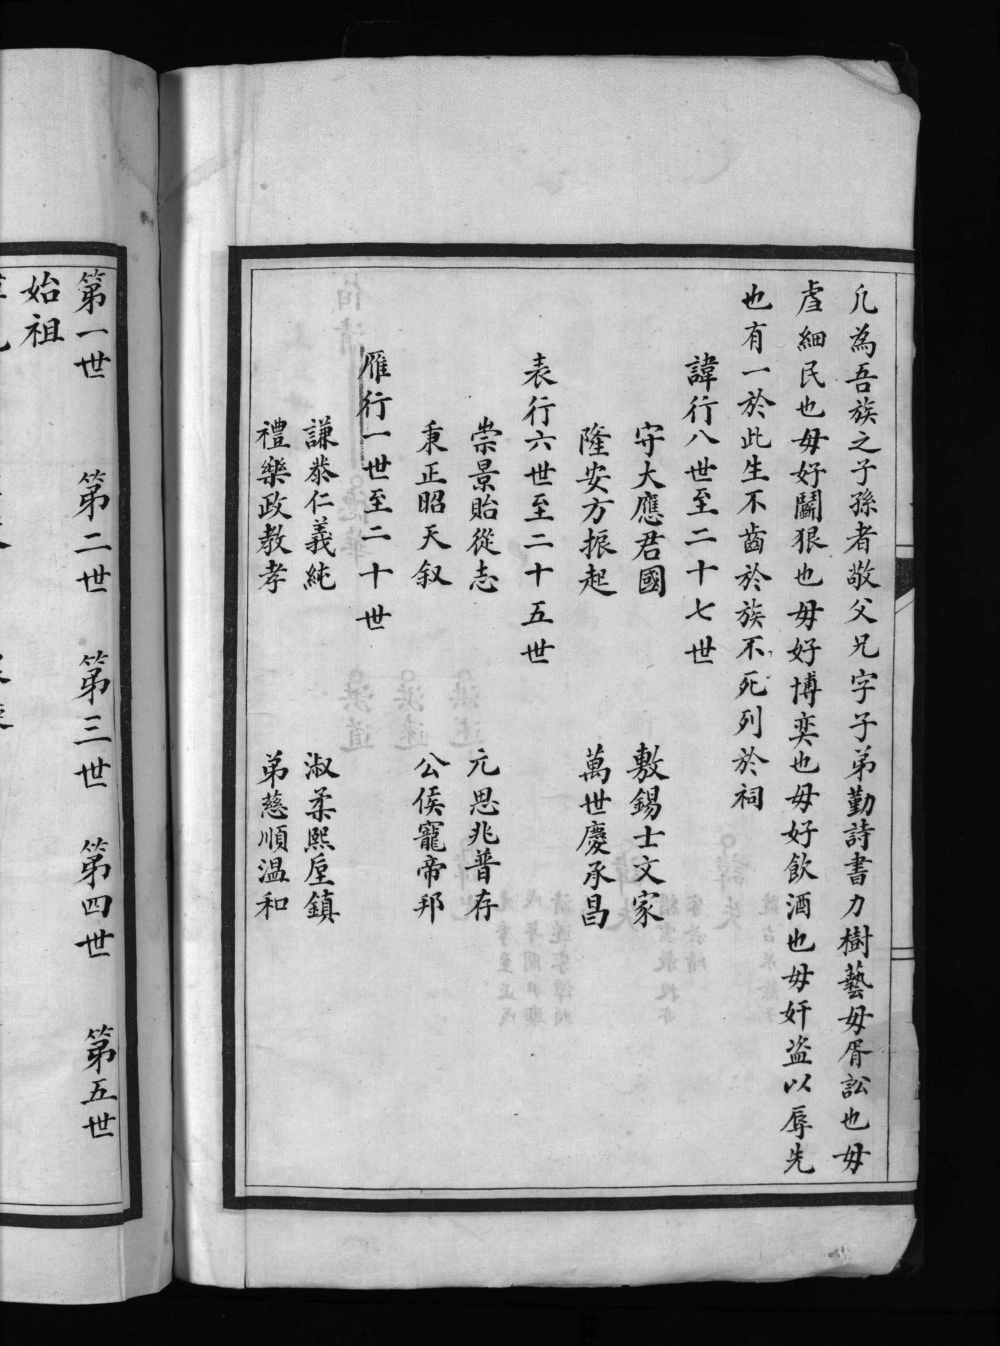 凢為吾族之子孫者敬父兄字子弟勤詩書力樹藝毋胥訟也毋
虐細民也毋好鬬狠也毋好博奕也毋好飲酒也毋奸盗以辱先
也有一於此生不齒於族不死列於祠
諱行八世至二十七世
守大應君國 敷錫士文家
隆安方振起 萬世慶承昌
表行六世至二十五世
崇景貽從志 元思兆普存
秉正昭天叙 公侯寵帝邦
雁行一世至二十世
謙恭仁義純 淑柔熙厘鎮
禮樂政教孝 弟慈順温和
第一世 第二世 第三世 第四世 第五世
始祖